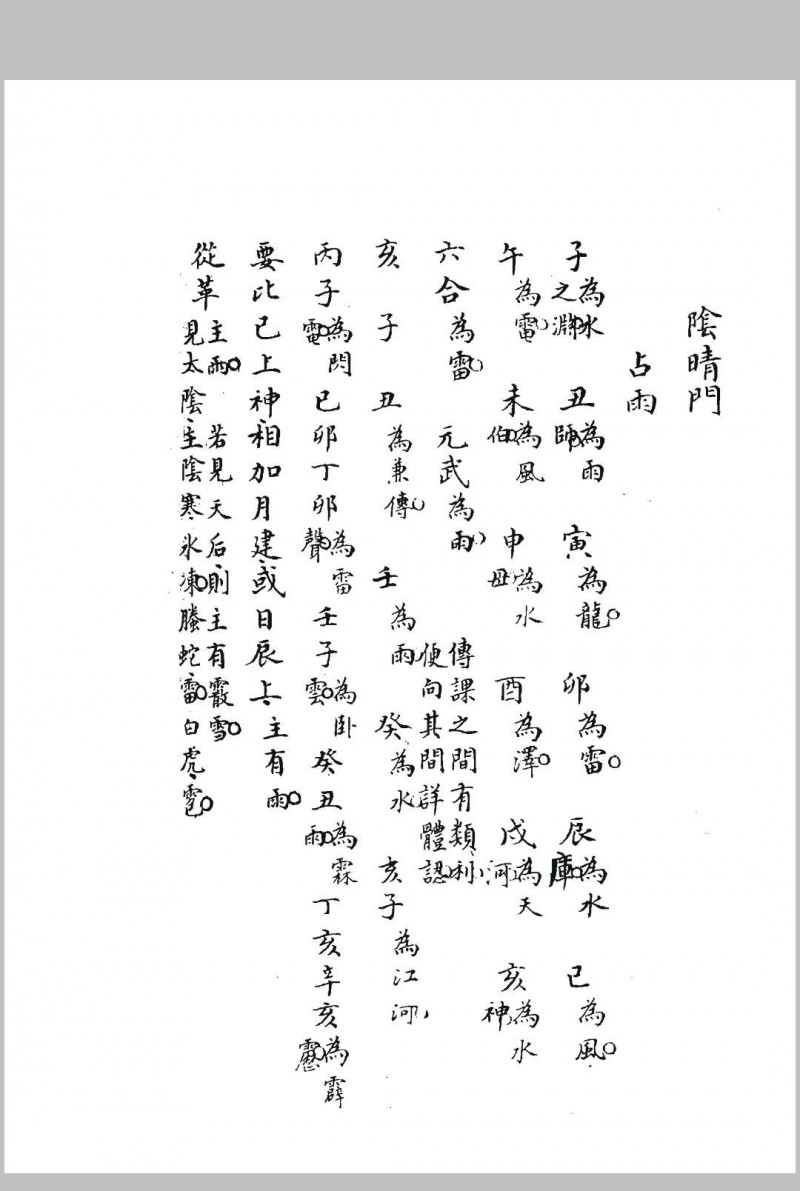 陰晴門
占雨
子為水之淵 丑為雨師 寅為龍 卯為雷 辰為水庫 巳為風
午為電 未為風伯 申為水母 酉為澤 戌為天河 亥為水神
六合為雷 元武為雨 傳課之間有類利便向其間詳體認
亥子丑為兼傳 壬為雨 癸為水 亥子為江河
丙子為閃電 已卯丁卯為雷聲 壬子為卧雲 癸丑為霖雨 丁亥辛亥為霹靂
要比已上神相加月建或日辰上主有雨
從革主雨若見天后則主有霰雪見太陰主陰寒氷凍螣蛇雷白虎雹